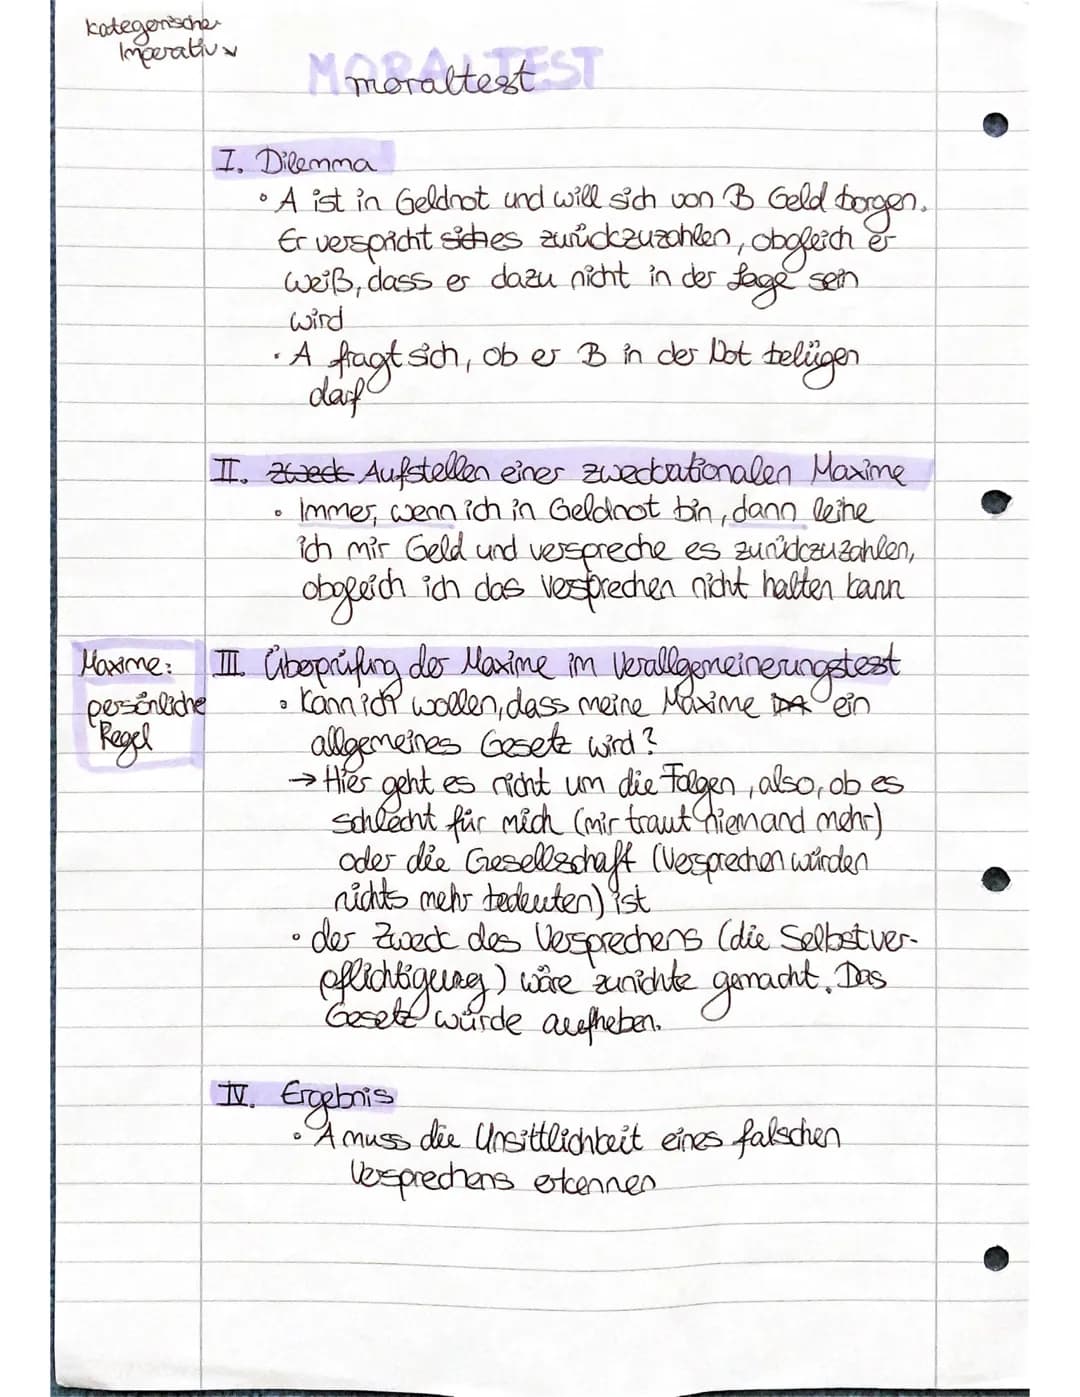 kategorischer
Imperativ
MORALTEST
moraltest
I. Dilemma
• A ist in Geldnot und will sich von B Geld borgen.
Er verspricht es zurückzuzahlen, obgleich er
weiß, dass er dazu nicht in der Lage sein
wird
• A fragt sich, ob er B in der Not belügen
darf
II. zweck Aufstellen einer zweckrationalen Maxime
• Immer, wenn ich in Geldnot bin, dann leihe
ich mir Geld und verspreche es zurückzuzahlen,
obgleich ich das Versprechen nicht halten kann
Maxime:
persönliche
Regel
III. Überprüfung der Maxime im Verallgemeinerungstest
• Kann ich wollen, dass meine Maxime ein
allgemeines Gesetz wird?
→ Hier geht es nicht um die Folgen, also, ob es
schlecht für mich (mir traut niemand mehr)
oder die Gesellschaft (Versprechen würden
nichts mehr bedeuten) ist
• der Zweck des Versprechens (die Selbstver-
pflichtigung) wäre zunichte gemacht. Das
Gesetz würde aufheben.
IV. Ergebnis
• A muss die Unsittlichkeit eines falschen
Versprechens erkennen